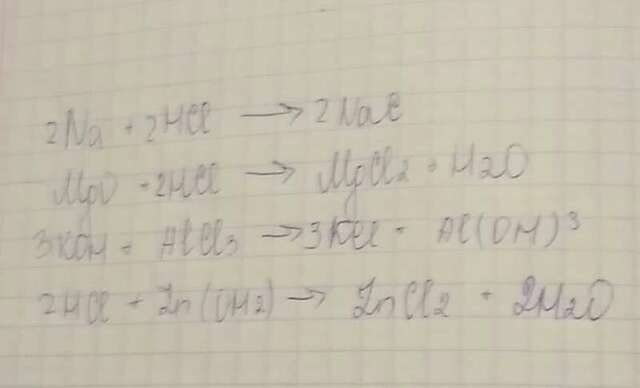 2Na + 2HCl → 2NaCl
MgO + 2HCl → MgCl2 + H2O
3KOH + AlCl3 → 3KCl + Al(OH)3
2HCl + Zn(OH2) → ZnCl2 + 2H2O